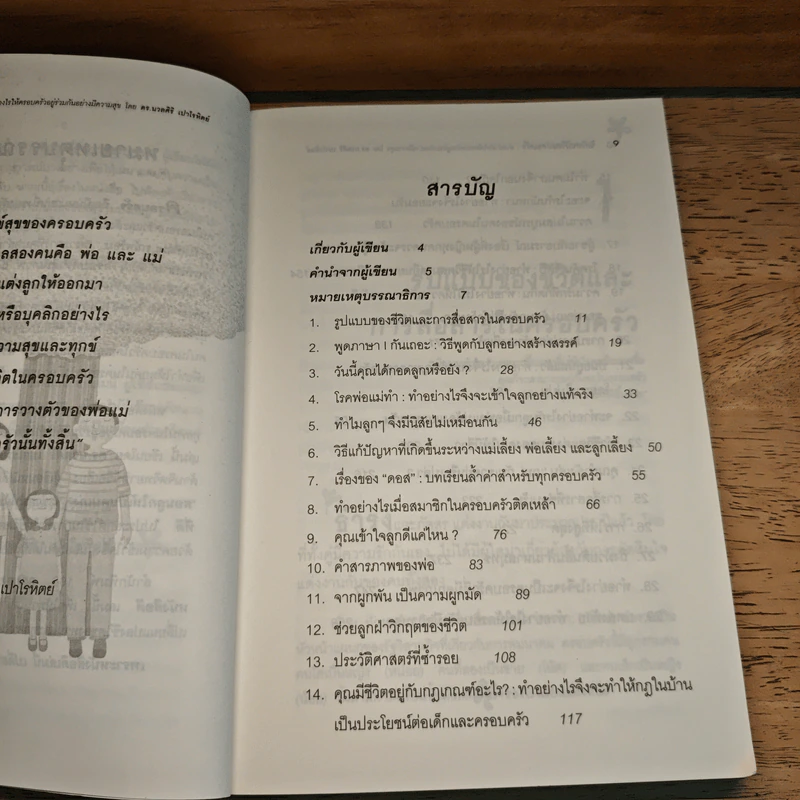 งไรให้ครอบครัวอยู่ร่วมกันอย่างมีความสุข โดย ดร.นวลศิริ เปาโรหิตย์
ข์สุขของครอบครัว
ลสองคนคือ พ่อ และ แม่
แต่งลูกให้ออกมา
หรือบุคลิกอย่างไร
วามสุขและทุกข์
วิตในครอบครัว
การวางตัวของพ่อแม่
รัวนั้นทั้งสิ้น"
เปาโรหิตย์
9
สารบัญ
เกี่ยวกับผู้เขียน 4
คำนำจากผู้เขียน 5
หมายเหตุบรรณาธิการ 7
1. รูปแบบของชีวิตและการสื่อสารในครอบครัว 11
2. พูดภาษา I กันเถอะ : วิธีพูดกับลูกอย่างสร้างสรรค์ 19
3. วันนี้คุณได้กอดลูกหรือยัง ? 28
4. โรคพ่อแม่ทำ : ทำอย่างไรจึงจะเข้าใจลูกอย่างแท้จริง 33
5. ทำไมลูกๆ จึงมีนิสัยไม่เหมือนกัน 46
6. วิธีแก้ปัญหาที่เกิดขึ้นระหว่างแม่เลี้ยง พ่อเลี้ยง และลูกเลี้ยง 50
7. เรื่องของ "ดอส" : บทเรียนล้ำค่าสำหรับทุกครอบครัว 55
8. ทำอย่างไรเมื่อสมาชิกในครอบครัวติดเหล้า 66
9. คุณเข้าใจลูกดีแค่ไหน ? 76
10. คำสารภาพของพ่อ 83
11. จากผูกพัน เป็นความผูกมัด 89
12. ช่วยลูกฝ่าวิกฤตของชีวิต 101
13. ประวัติศาสตร์ที่ซ้ำรอย 108
14. คุณมีชีวิตอยู่กับกฎเกณฑ์อะไร? : ทำอย่างไรจึงจะทำให้กฎในบ้าน
เป็นประโยชน์ต่อเด็กและครอบครัว 117